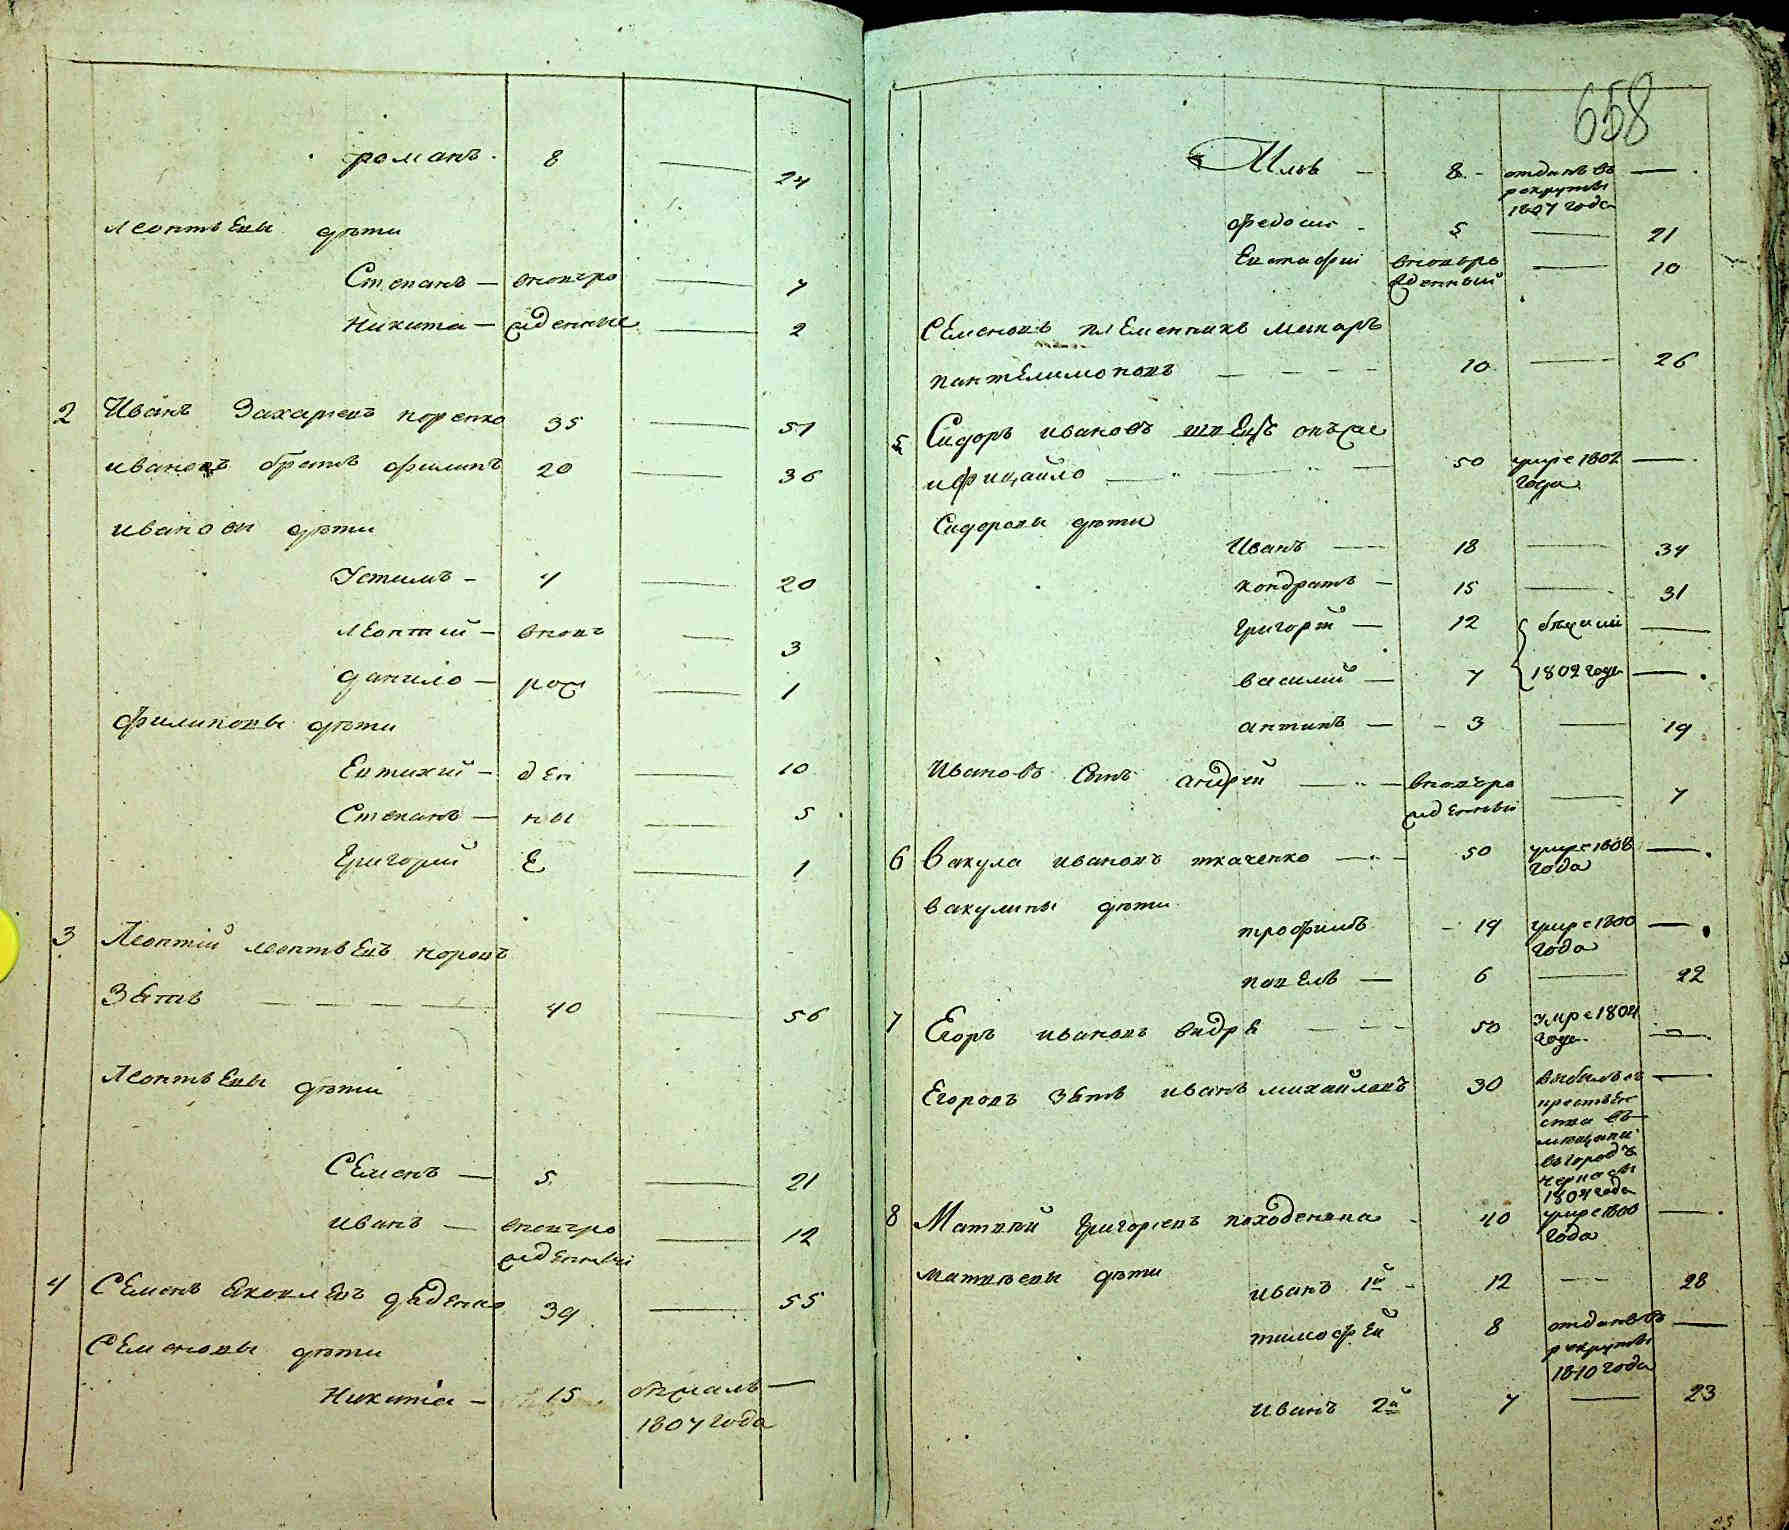 романъ. 8 — 24
леонтьевы дѣти
Степанъ — вновьро — 7
Никита — жденные — 2
2 Иванъ Захарьевъ коренко 35 — 51
ивановъ братъ филипъ 20 — 36
ивановы дѣти
Устимъ — 4 — 20
леонтий — вновь — 3
данило — рож — 1
филиповы дѣти
Евтихий — ден — 10
Степанъ — ны — 5
Григорий е — 1
3 Леонтий леонтьевъ коровъ
Зять — — — — 40 — 56
Леонтьевы дѣти
Семенъ — 5 — 21
иванъ — вновьро — 12
жденный
4 Семенъ яковлевъ дяденко 39 — 55
Семеновы дѣти
Никита — 15 бѣжалъ —
1807 года
658
Илья — 8 — отданъ въ —
рекруты
1807 года
Федосий — 5 — 21
Евстафий вновьро — 10
жденный
Семеновъ племенникъ макаръ
пантелимоновъ — — — — 10 — 26
5 Сидоръ ивановъ швецъ онъже
50 умре 1802 —
года
Сидоровы дѣти
Иванъ — 18 — 34
кондратъ — 15 — 31
Григорий — 12 бежали —
василий — 7 1802 года —
антипъ — 3 — 19
Ивановъ сынъ андрей — вновьро — 7
жденный
6 Вакула ивановъ ткаченко — 50 умре 1808 —
года
вакулины дѣти
трофимъ — 19 умре 1800 —
года
павелъ — 6 — 22
7 Егоръ ивановъ видря — — — 50 умре 1804 —
года
Егоровъ зять иванъ михайловъ 30 выбылъ съ —
въ
мещани
въ городъ
черкасы
1804 года
8 Матвѣй Григорьевъ 40 умре 1800 —
года
матвѣевы дѣти
иванъ 1й — 12 — 28
тимофѣй 8 отданъ въ —
рекруты
1810 года
иванъ 2й 7 — 23